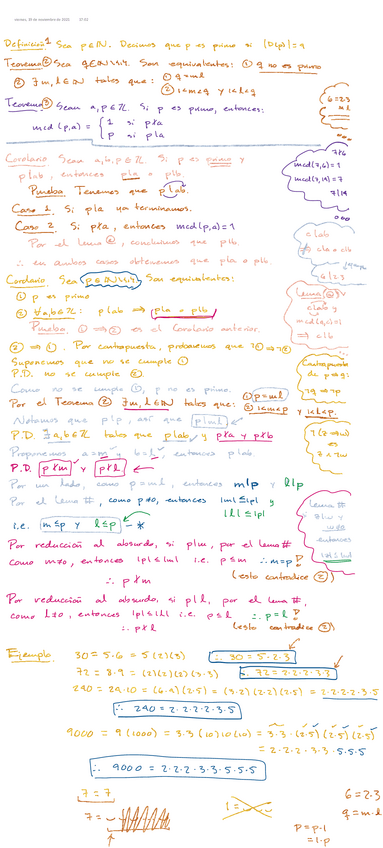 viernes, 26 de noviembre de 2021 07:03
Definición 1 Sea p∈ℕ. Decimos que p es primo si |D(p)|=4
Teorema 2 Sea q∈ℕ\{1}. Son equivalentes: ① q no es primo
② ∃ m,l∈ℕ tales que: ① q=ml
② 1<m<q y 1<l<q
6=2·3
Teorema 3 Sean a,p∈ℤ. Si p es primo, entonces:
mcd(p,a) = { 1 si p∤a
p si p|a
7∤6
mcd(7,6)=1
mcd(7,14)=7
7|14
Corolario Sean a,b,p∈ℤ. Si p es primo y
p|ab, entonces p|a o p|b.
Prueba Tenemos que p|ab.
Caso 1 Si p|a ya terminamos.
Caso 2 Si p∤a, entonces mcd(p,a)=1
Por el lema @, concluimos que p|b.
∴ en ambos casos obtenemos que p|a o p|b.
c|ab
⇒ c|a o c|b
Corolario Sea p∈ℕ\{1}. Son equivalentes:
① p es primo
② ∀a,b∈ℤ: p|ab ⇒ p|a o p|b
Prueba ① ⇒ ② es el Corolario anterior.
Lema @
c|ab y
mcd(a,c)=1
⇒ c|b
② ⇒ ①. Por contrapuesta, probaremos que ¬① ⇒ ¬②
Suponemos que no se cumple ①
P.D. no se cumple ②.
Como no se cumple ①, p no es primo.
Por el Teorema ② ∃ m,l∈ℕ tales que: ① p=ml
② 1<m<p y 1<l<p.
Contrapuesta
de p ⇒ q:
¬q ⇒ ¬p
Notamos que p|p, así que p|ml
P.D. ∃ a,b∈ℤ tales que p|ab y p∤a y p∤b
Proponemos a=m y b=l, entonces p|ab.
P.D. p∤m y p∤l
Por un lado, como p=ml, entonces m|p y l|p
Por el lema #, como p≠0, entonces |m|≤|p| y
|l|≤|p|
i.e. m≤p y l≤p — *
Lema #
entonces
Por reducción al absurdo, si p|m, por el lema #
como m≠0, entonces |p|≤|m| i.e. p≤m ∴ m=p !
∴ p∤m (esto contradice ②)
Por reducción al absurdo, si p|l, por el lema #,
como l≠0, entonces |p|≤|l| i.e. p≤l ∴ p=l !
∴ p∤l (esto contradice ②)
Ejemplo 30 = 5·6 = 5(2)(3) ∴ 30 = 5·2·3
72 = 8·9 = (2)(2)(2)(3·3) ∴ 72 = 2·2·2·3·3
240 = 24·10 = (6·4)(2·5) = (3·2)(2·2)(2·5) = 2·2·2·2·3·5
∴ 240 = 2·2·2·2·3·5
9000 = 9(1000) = 3·3(10)(10)(10) = 3·3·(2·5)(2·5)(2·5)
= 2·2·2·3·3·5·5·5
∴ 9000 = 2·2·2·3·3·5·5·5
7 = 7
7 =
1 =
6 = 2·3
q = m·l
p = p·1
= 1·p